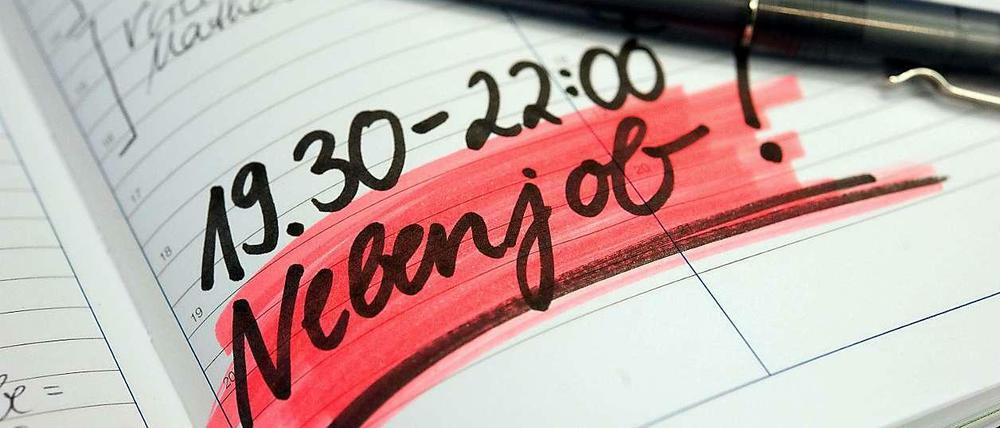 19.30-22:00
Nebenjob!
17
18
19
20
20